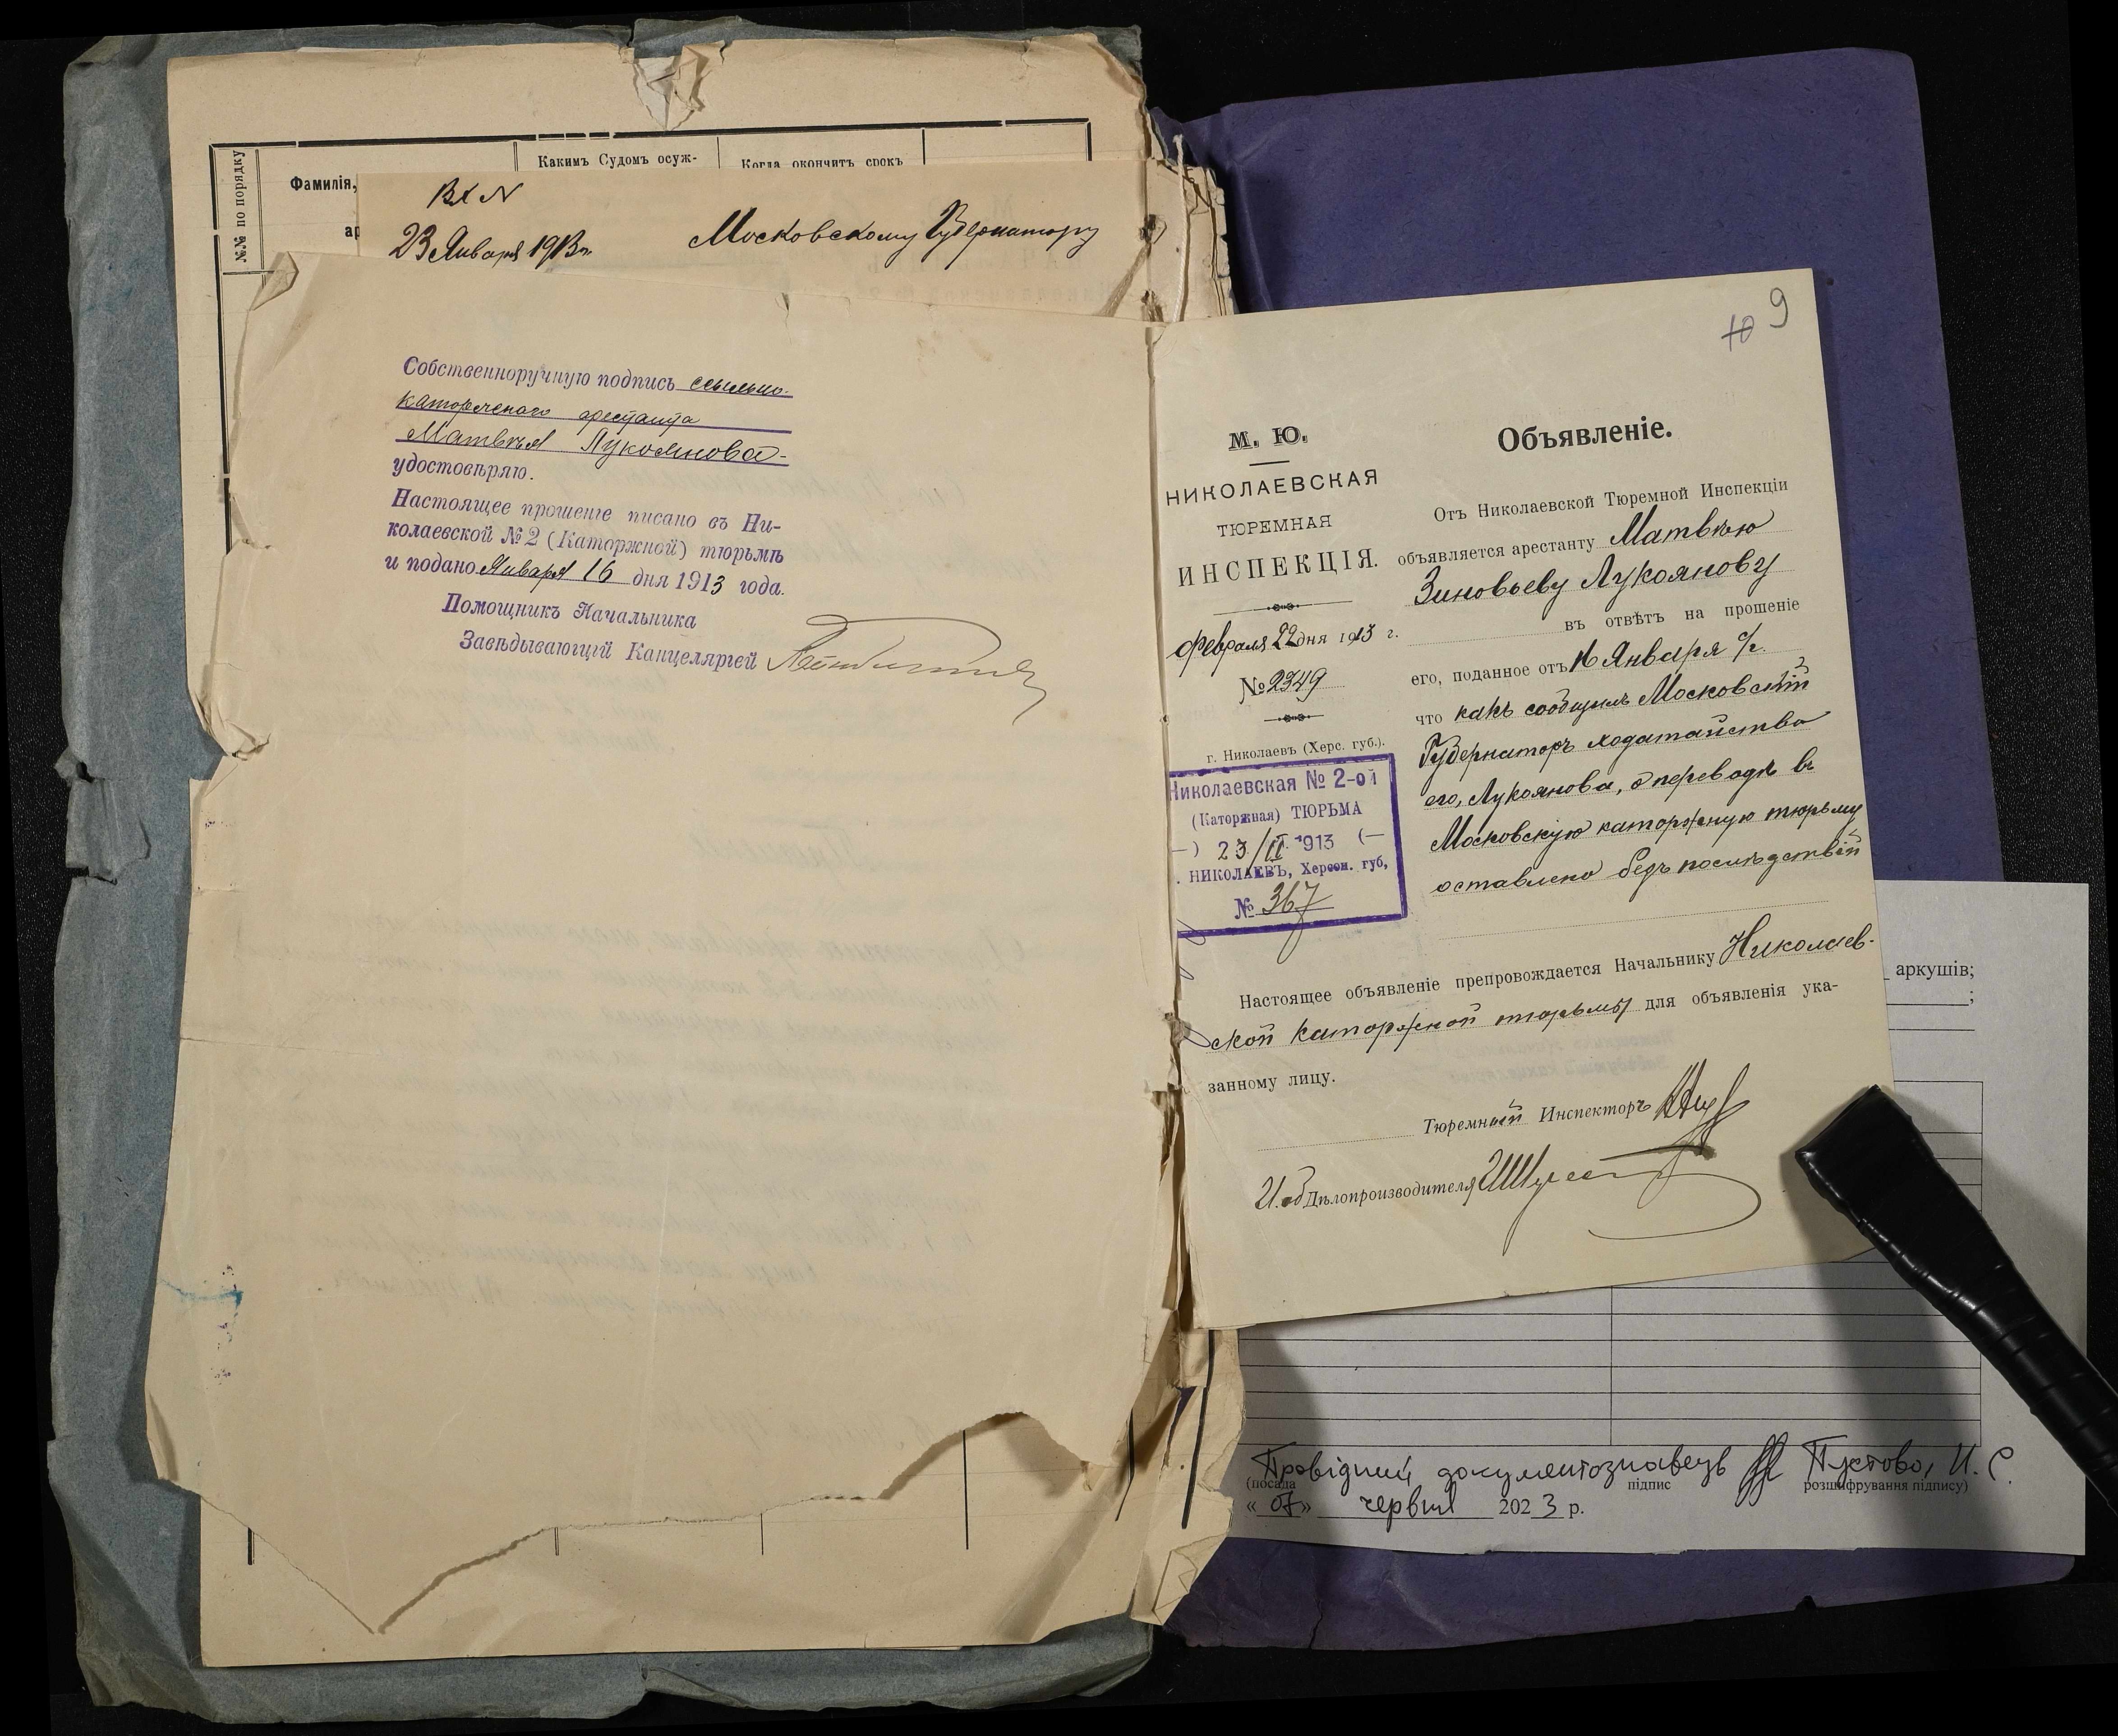 №№ по порядку
Фамилія,
Какимъ Судомъ осуж-
Когда окончитъ срокъ
ар
Вх N
23 Января 1913 г.
Московскому Губернатору
Собственноручную подпись ссыльно-
каторжного арестанта
Матвѣя Лукоянова-
удостовѣряю.
Настоящее прошеніе писано въ Ни-
колаевской №2 (Каторжной) тюрьмѣ
и подано Января 16 дня 1913 года.
Помощникъ Начальника
Завѣдывающій Канцеляріей
10 9
М. Ю.
НИКОЛАЕВСКАЯ
ТЮРЕМНАЯ
ИНСПЕКЦІЯ.
Февраля 22 дня 1913 г.
№ 2349
г. Николаевъ (Херс. губ.).
Николаевская № 2-ой
(Каторжная) ТЮРЬМА
—) 23/II 1913 (—
. НИКОЛАЕВЪ, Херсон. губ,
№ 367
Объявленіе.
Отъ Николаевской Тюремной Инспекціи
объявляется арестанту Матвѣю
Зиновьеву Лукоянову
въ отвѣтъ на прошеніе
его, поданное отъ 16 Января с/г.
что какъ сообщилъ Московскій
Губернаторъ ходатайство
его, Лукоянова, о переводѣ въ
Московскую каторжную тюрьму
оставлено безъ послѣдствій
Настоящее объявленіе препровождается Начальнику Николаев-
ской каторжной тюрьмы для объявленія ука-
занному лицу.
Тюремный Инспекторъ
И. об Дѣлопроизводителя
аркушів;
;
Провідний документознавець Пустово, И. С.
(посада підпис розшифрування підпису)
« 07 » червня 2023 р.